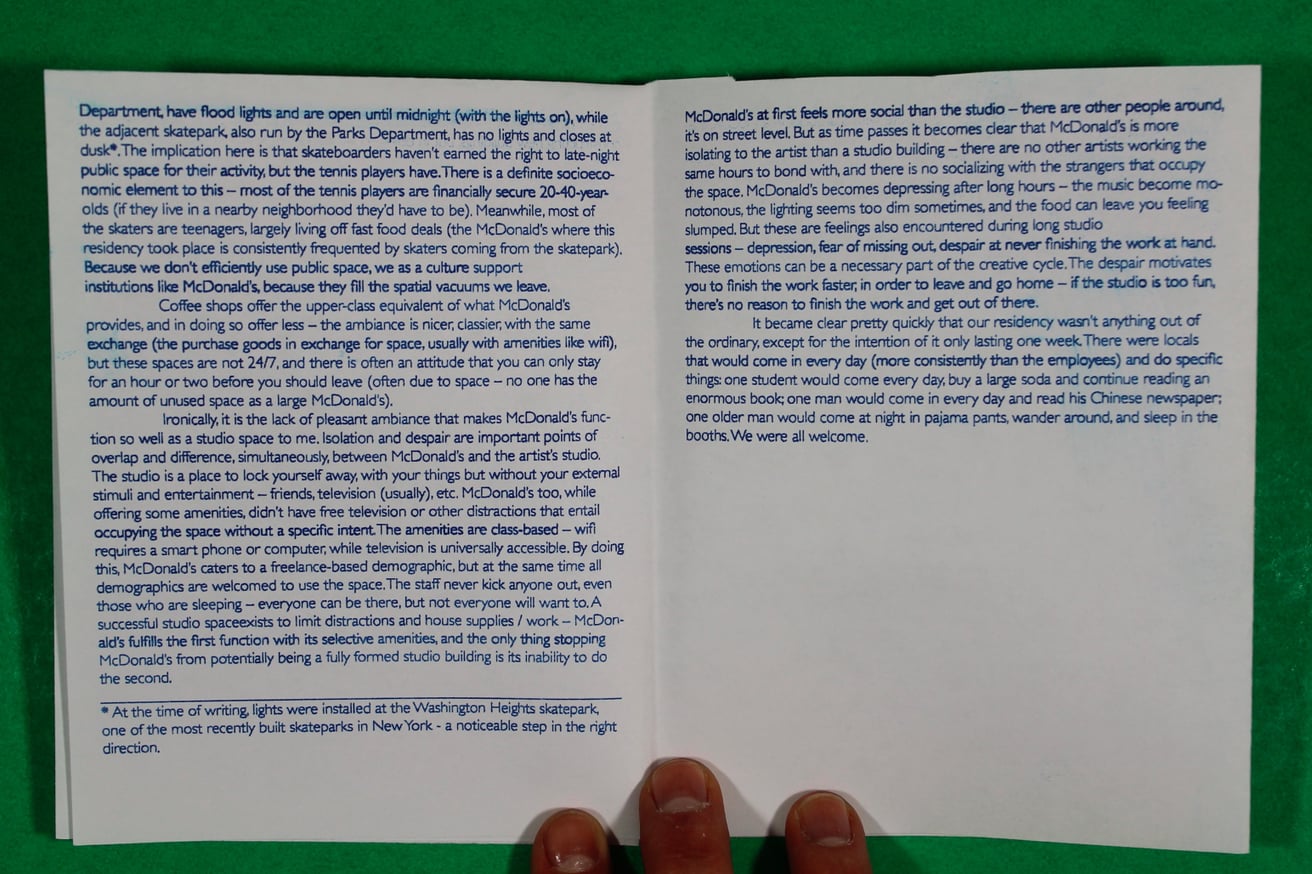 Department, have flood lights and are open until midnight (with the lights on), while
the adjacent skatepark, also run by the Parks Department, has no lights and closes at
dusk*. The implication here is that skateboarders haven't earned the right to late-night
public space for their activity, but the tennis players have. There is a definite socioeco-
nomic element to this – most of the tennis players are financially secure 20-40-year-
olds (if they live in a nearby neighborhood they'd have to be). Meanwhile, most of
the skaters are teenagers, largely living off fast food deals (the McDonald's where this
residency took place is consistently frequented by skaters coming from the skatepark).
Because we don't efficiently use public space, we as a culture support
institutions like McDonald's, because they fill the spatial vacuums we leave.
Coffee shops offer the upper-class equivalent of what McDonald's
provides, and in doing so offer less – the ambiance is nicer, classier, with the same
exchange (the purchase goods in exchange for space, usually with amenities like wifi),
but these spaces are not 24/7, and there is often an attitude that you can only stay
for an hour or two before you should leave (often due to space – no one has the
amount of unused space as a large McDonald's).
Ironically, it is the lack of pleasant ambiance that makes McDonald's func-
tion so well as a studio space to me. Isolation and despair are important points of
overlap and difference, simultaneously, between McDonald's and the artist's studio.
The studio is a place to lock yourself away, with your things but without your external
stimuli and entertainment – friends, television (usually), etc. McDonald's too, while
offering some amenities, didn't have free television or other distractions that entail
occupying the space without a specific intent. The amenities are class-based – wifi
requires a smart phone or computer, while television is universally accessible. By doing
this, McDonald's caters to a freelance-based demographic, but at the same time all
demographics are welcomed to use the space. The staff never kick anyone out, even
those who are sleeping – everyone can be there, but not everyone will want to. A
successful studio spaceexists to limit distractions and house supplies / work – McDon-
ald's fulfills the first function with its selective amenities, and the only thing stopping
McDonald's from potentially being a fully formed studio building is its inability to do
the second.
* At the time of writing, lights were installed at the Washington Heights skatepark,
one of the most recently built skateparks in New York - a noticeable step in the right
direction.
McDonald's at first feels more social than the studio – there are other people around,
it's on street level. But as time passes it becomes clear that McDonald's is more
isolating to the artist than a studio building – there are no other artists working the
same hours to bond with, and there is no socializing with the strangers that occupy
the space. McDonald's becomes depressing after long hours – the music become mo-
notonous, the lighting seems too dim sometimes, and the food can leave you feeling
slumped. But these are feelings also encountered during long studio
sessions – depression, fear of missing out, despair at never finishing the work at hand.
These emotions can be a necessary part of the creative cycle. The despair motivates
you to finish the work faster, in order to leave and go home – if the studio is too fun,
there's no reason to finish the work and get out of there.
It became clear pretty quickly that our residency wasn't anything out of
the ordinary, except for the intention of it only lasting one week. There were locals
that would come in every day (more consistently than the employees) and do specific
things: one student would come every day, buy a large soda and continue reading an
enormous book; one man would come in every day and read his Chinese newspaper;
one older man would come at night in pajama pants, wander around, and sleep in the
booths. We were all welcome.